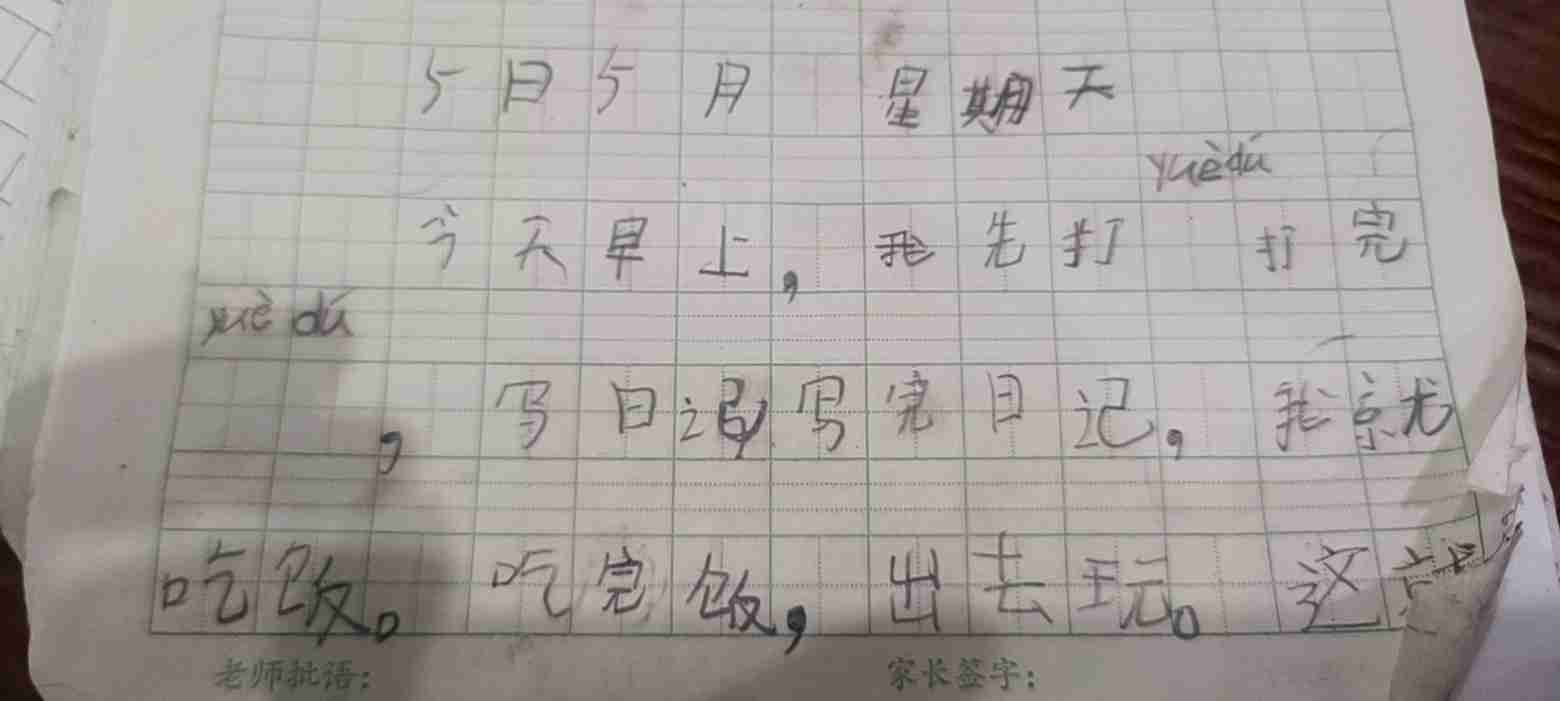 5日5月 星期天
yuèdú
今天早上,我先打 打完
yuè dú
,写日记,写完日记,我就
吃饭。吃完饭,出去玩。这就
老师批语: 家长签字: